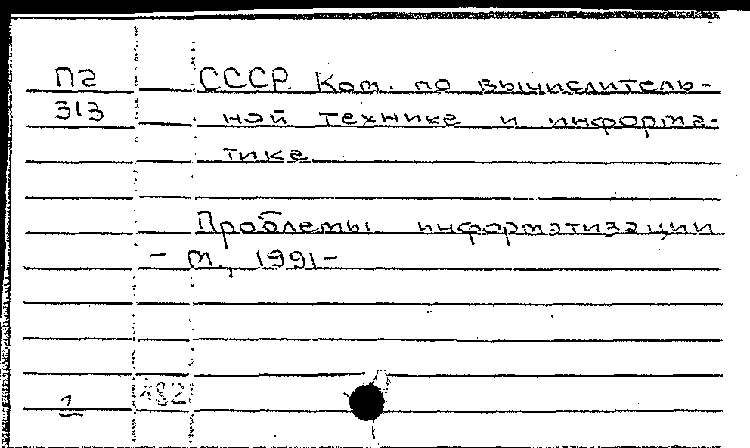 П2 СССР. Ком. по вычислитель-
313 ной техники и информа-
тике
Проблемы информатизации
- М., 1991-
1 482